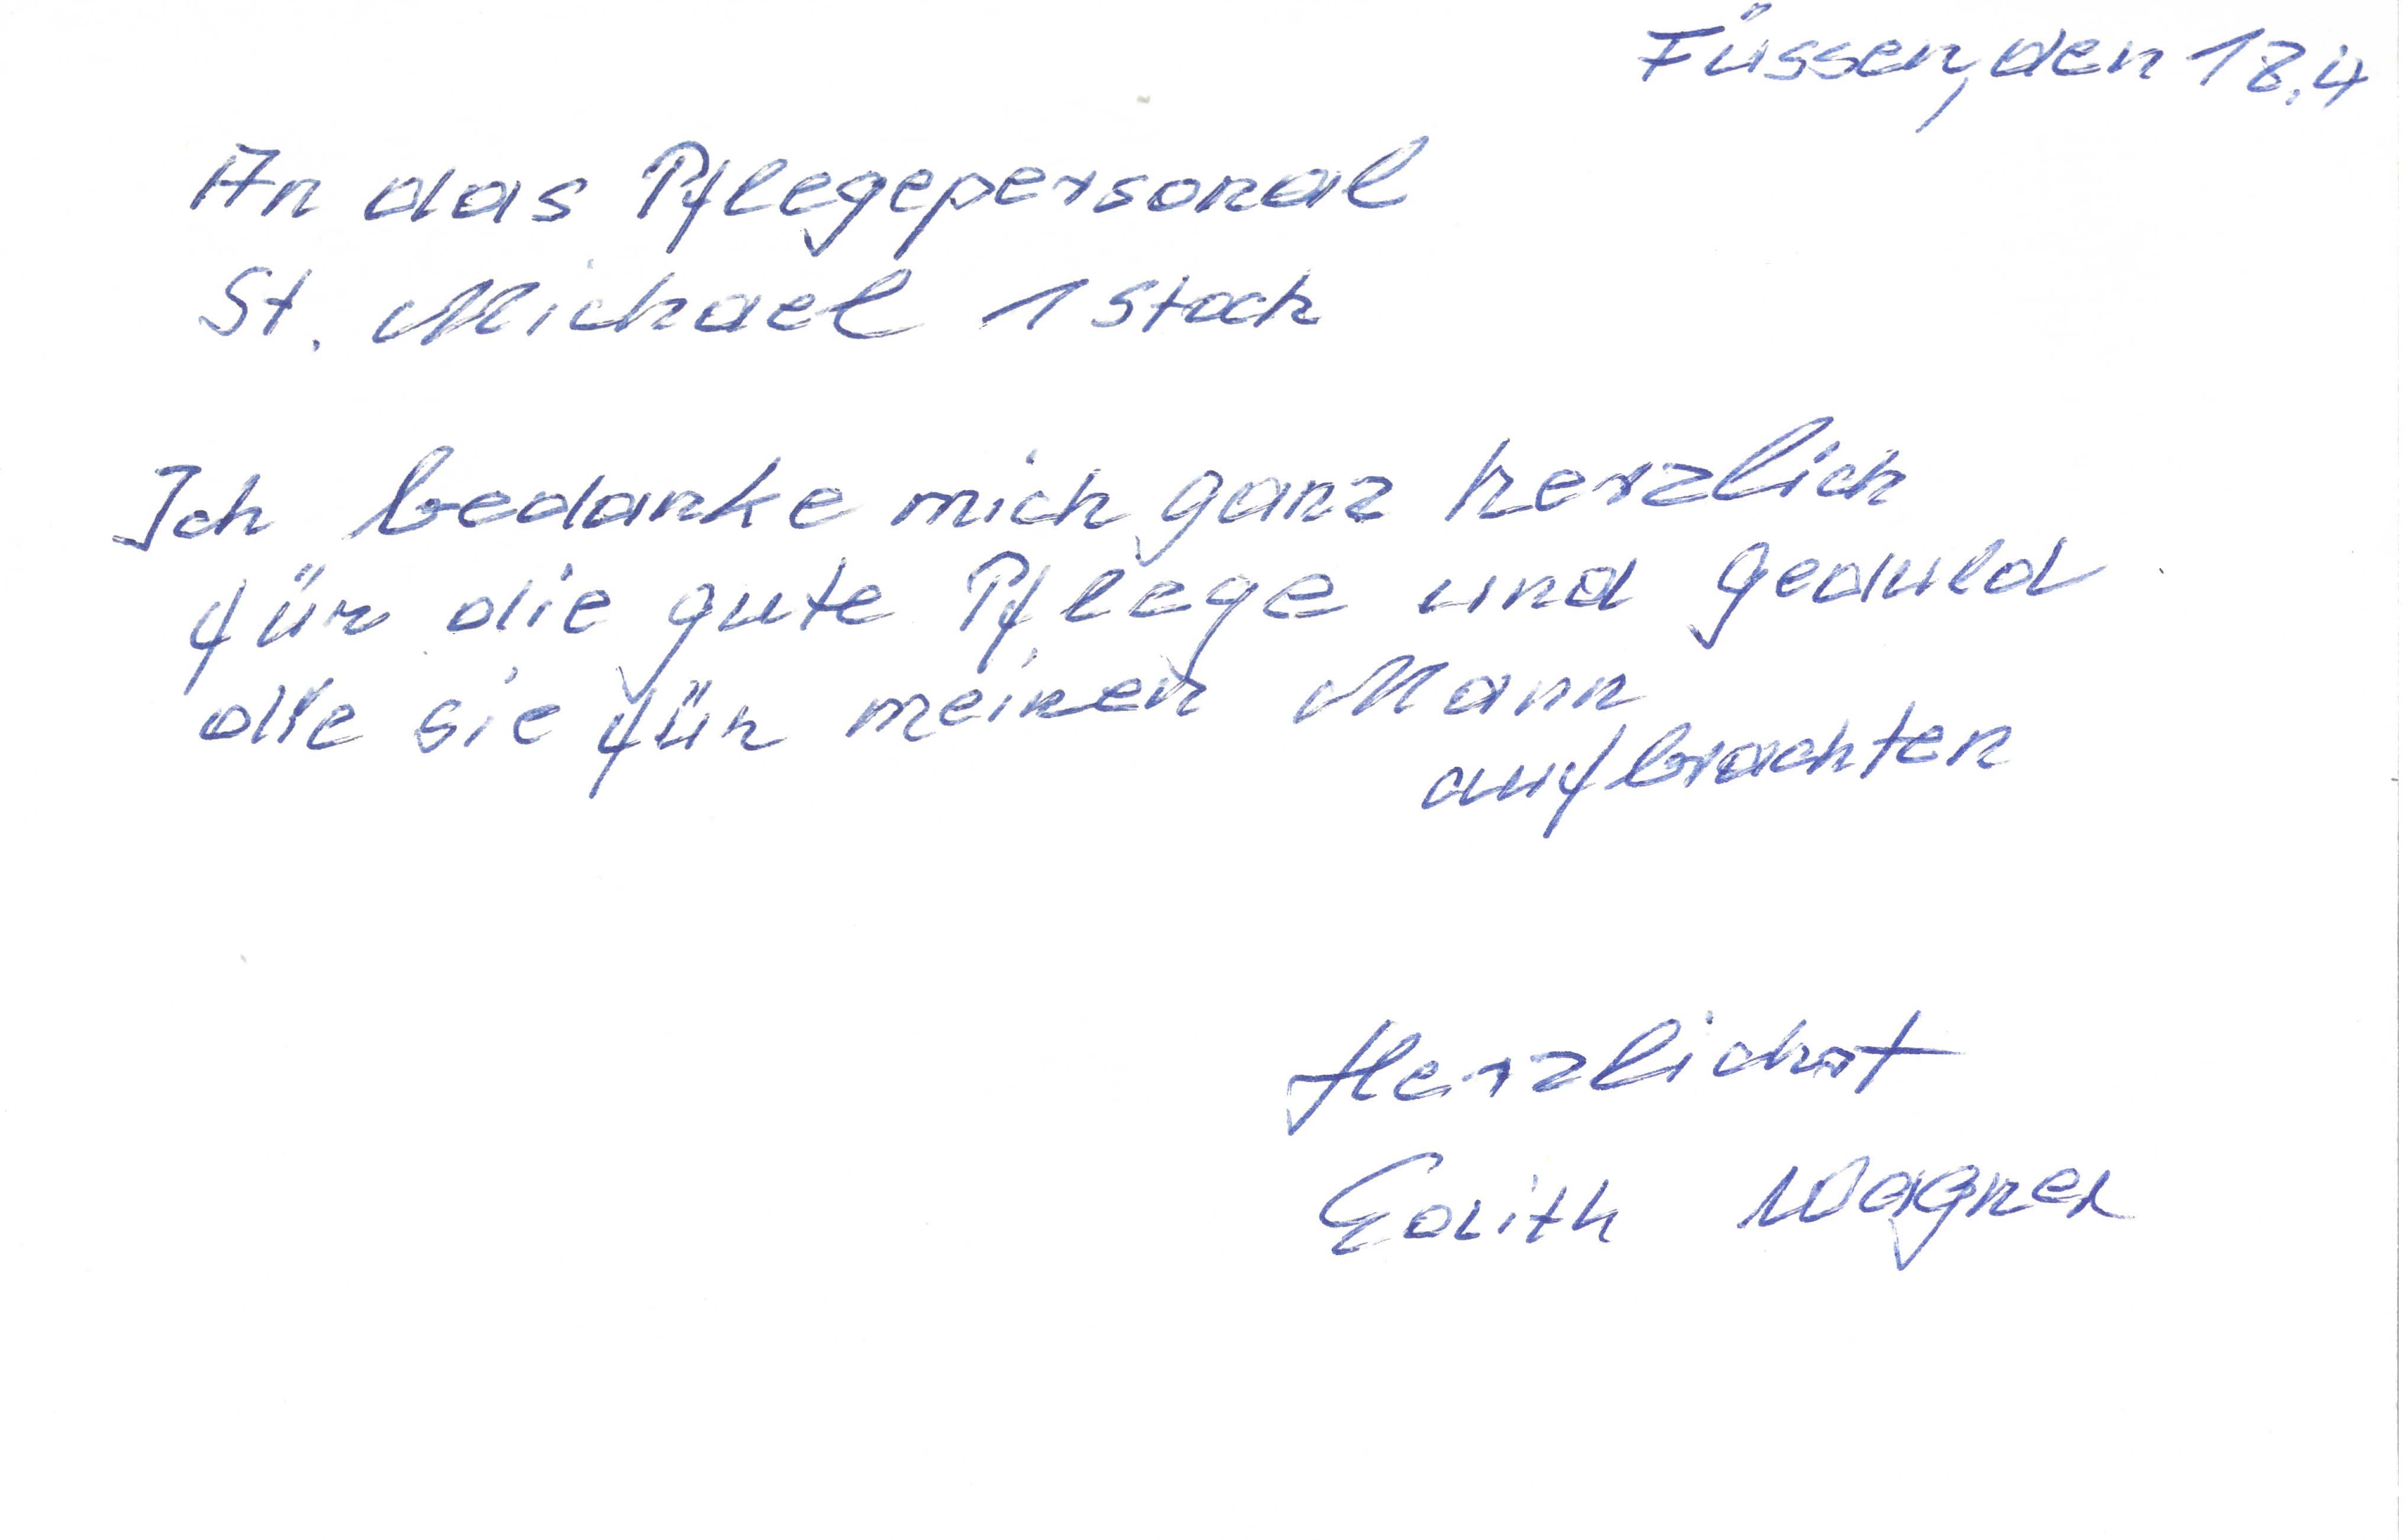 Füssen, den 18.4
An das Pflegepersonal
St. Michael 1 Stock
Ich bedanke mich ganz herzlich
für die gute Pflege und Geduld
die sie für meinen Mann
aufbrachten
Herzlichst
Edith Wagner